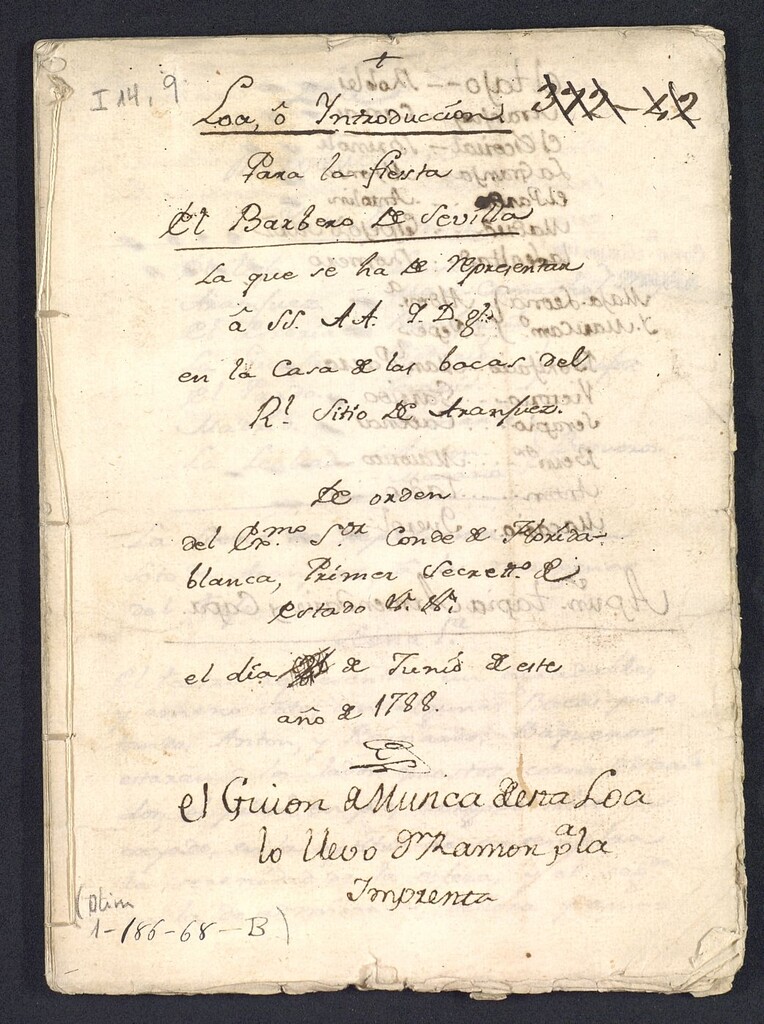 +
I 14, 9
Loa, ô Introduccion
372-42
Para la fiesta
El Barbero de Sevilla
La que se ha de representar
â SS. AA.
en la Casa de las bacas del
Rl. Sitio de Aranjuez.
De orden
del Exmo. Sor. Conde de Florida-
blanca, Primer Secretº. de
Estado &ª. &ª.
el dia de Junio de este
año de 1788.
el Guion de Musica de esta Loa
lo llevo Dn. Ramon pª la
Imprenta
(Olim
1-186-68-B)